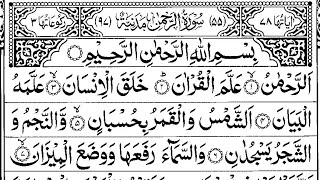 اٰیَاتُهَا ۷۸ (۵۵) سُوْرَةُ الرَّحْمٰنِ مَدَنِيَّةٌ (۹۷) رُكُوْعَاتُهَا ۳
بِسْمِ اللّٰهِ الرَّحْمٰنِ الرَّحِيْمِ
اَلرَّحْمٰنُ ۱ عَلَّمَ الْقُرْاٰنَ ۲ خَلَقَ الْاِنْسَانَ ۳ عَلَّمَهُ
الْبَيَانَ ۴ اَلشَّمْسُ وَالْقَمَرُ بِحُسْبَانٍ ۵ وَّالنَّجْمُ وَ
الشَّجَرُ يَسْجُدٰنِ ۶ وَالسَّمَآءَ رَفَعَهَا وَوَضَعَ الْمِيْزَانَ ۷